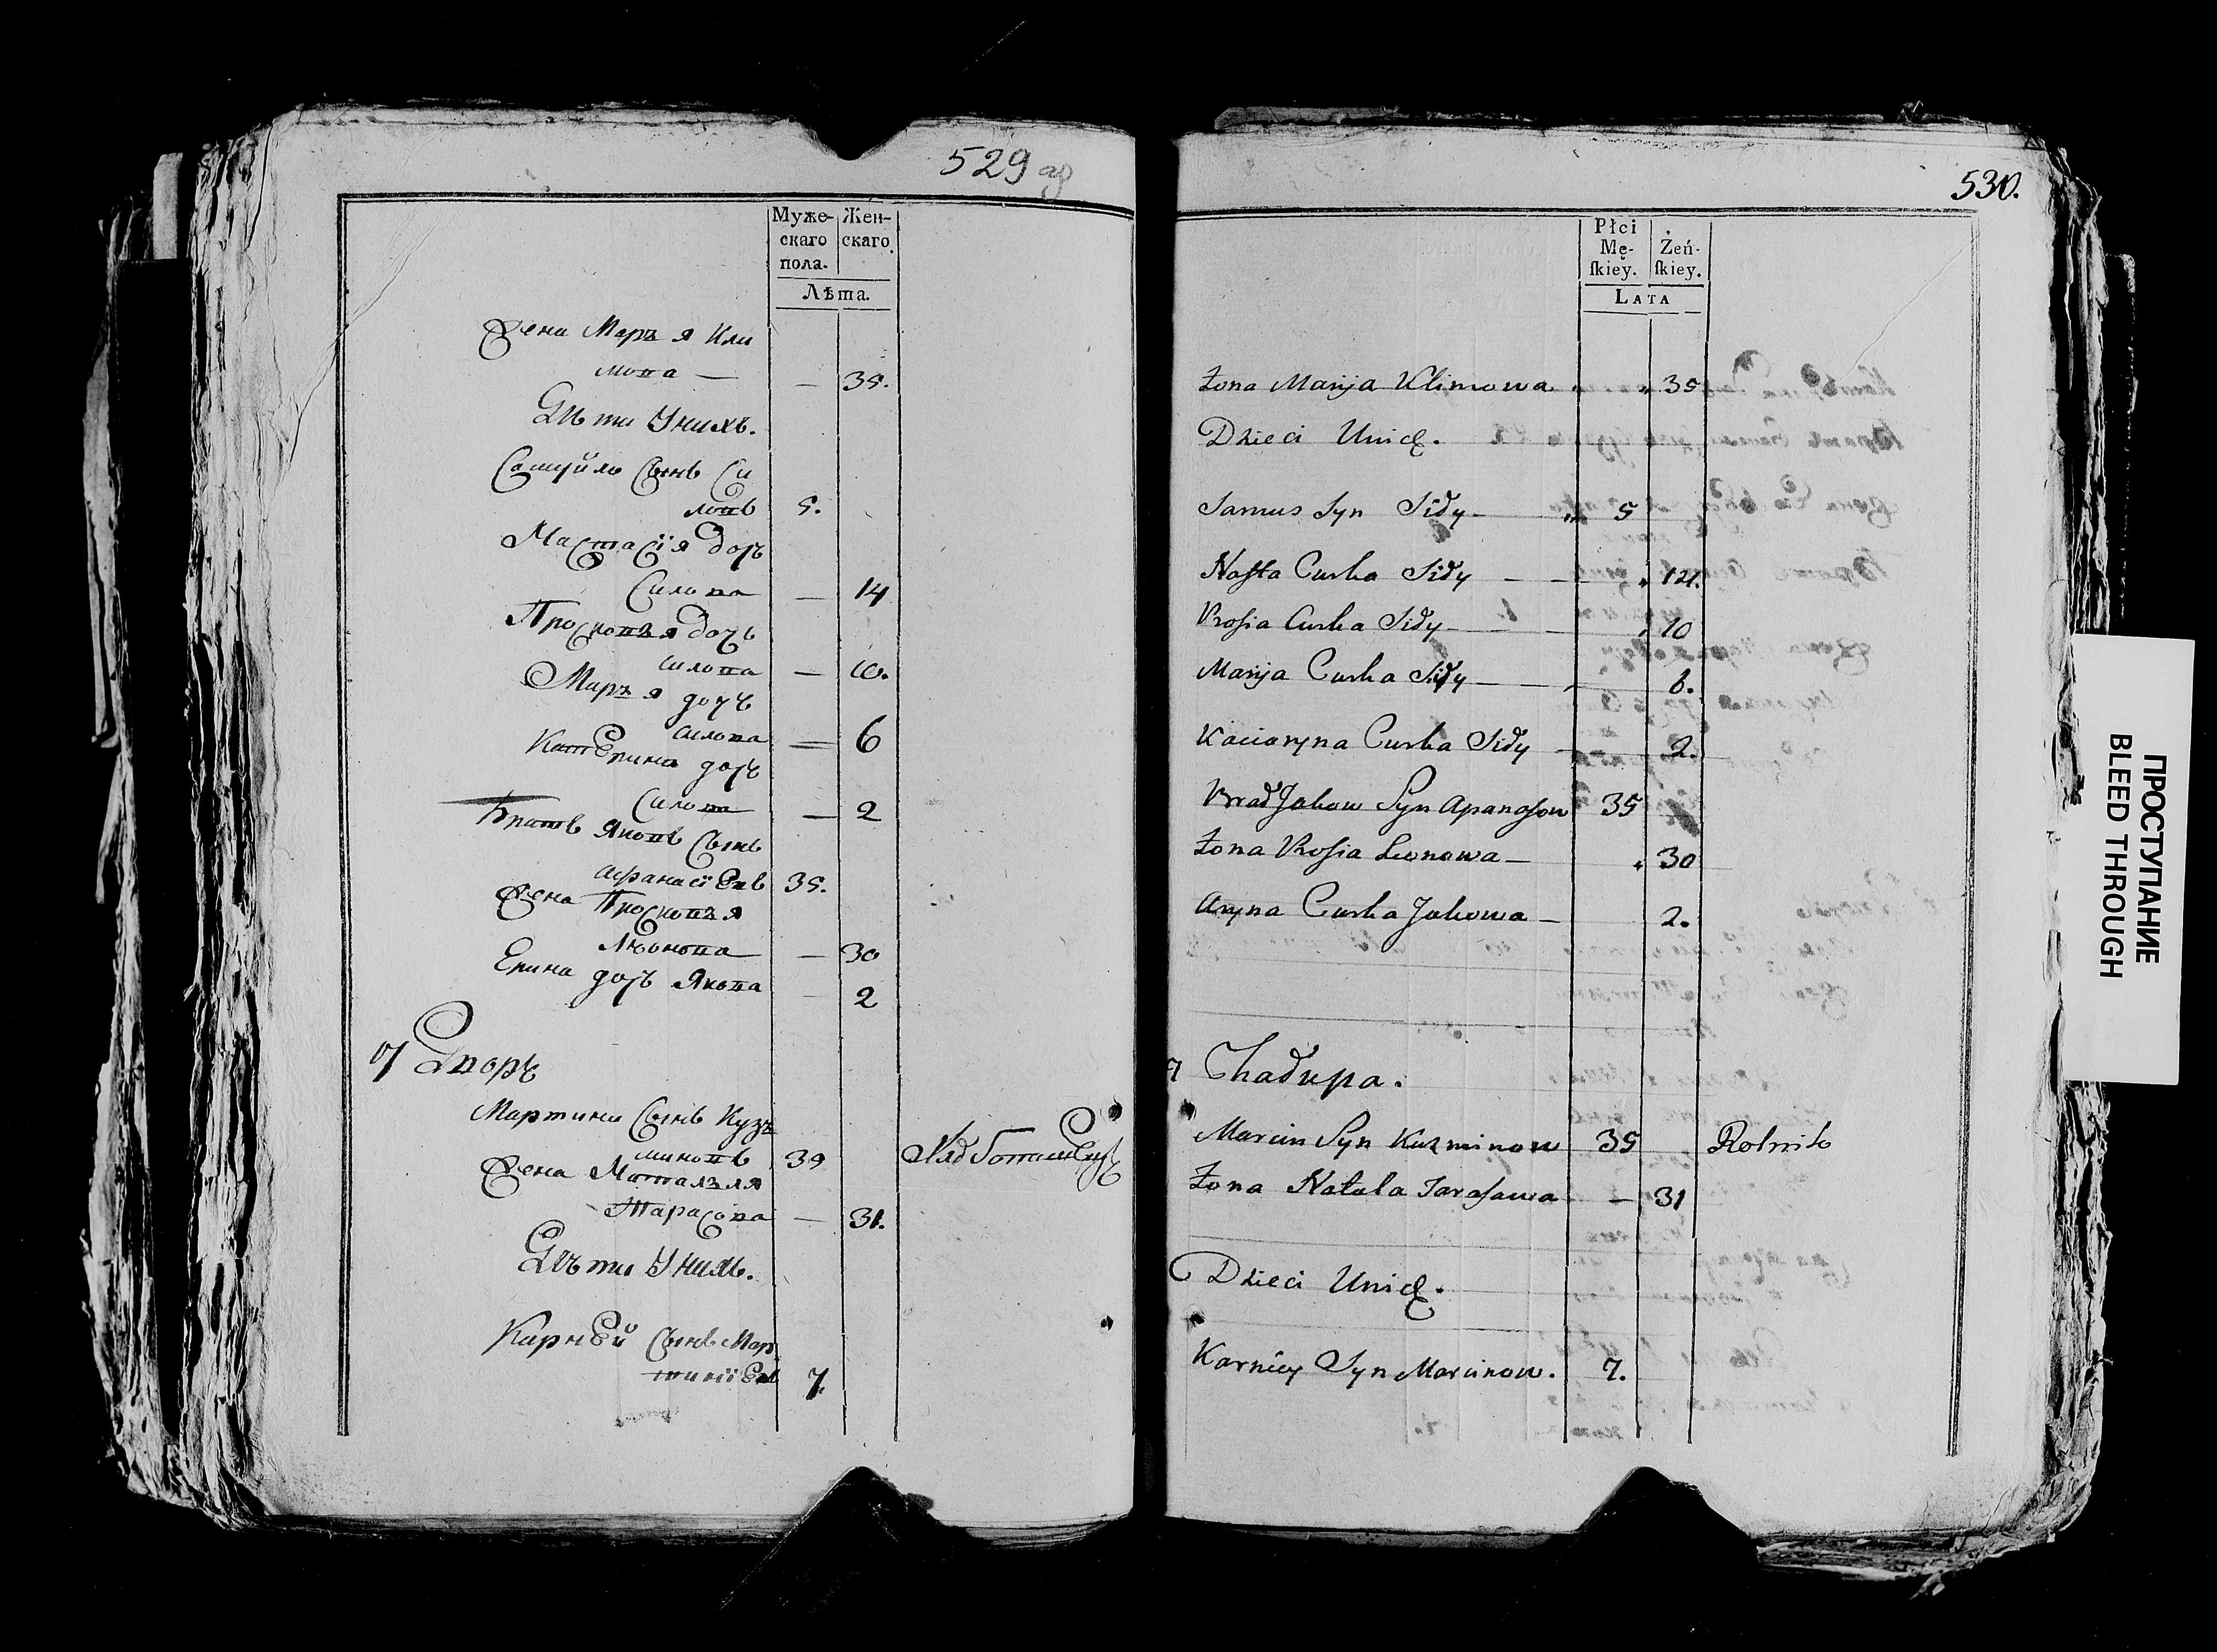 529 об
Муже-
скаго
пола.
Жен-
скаго.
Лѣта.
Жена Марья Кли
мова — — 35.
Дѣти Унихъ.
Самуйло Сынъ Си
ловъ 5.
Настасія дочь
Силова — 14
Просковья дочь
Силова — 10.
Марья дочь
Силова — 6
Катерина дочь
Силова — 2
Братъ Яковъ Сынъ
Афанасіевъ 35.
Жена Просковья
Лѣонова — 30
Ерина дочь Якова — 2
7 Дворъ
Мартинъ Сынъ Кузь
миновъ 39
Жена Наталья
Тарасова — 31.
Дѣти Унихъ.
Карнѣй Сынъ Мар
тиніевъ 7.
530.
Płci
Mę-
ſkiey.
Żeń-
ſkiey.
LATA
Żona Maryja Klimowa 35
Dzieci Unich.
Samus Syn Sidy 5
Nasta Curka Sidy — 14.
Prosia Curka Sidy — 10
Maryja Curka Sidy — 6.
Kaciaryna Curka Sidy 2.
Brad Jakow Syn Apanasow 35
Żona Prosia Leonowa — 30
Aryna Curka Jakowa — 2.
7 Chadupa.
Marcin Syn Kuzminow 35 Rolnik
Żona Natala Tarasawa — 31
Dzieci Unich.
Karniey Syn Marcinow. 7.
ПРОСТУПАНИЕ
BLEED THROUGH